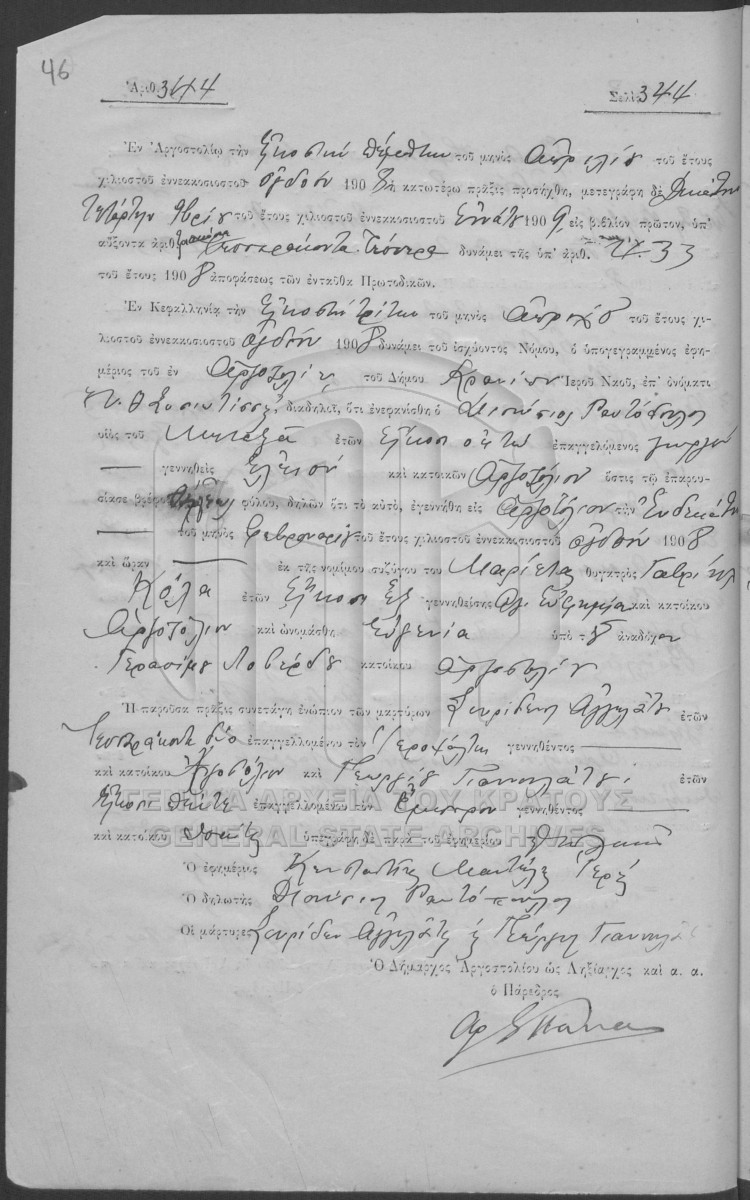 46
Ἀριθ. 344 Σελὶς 344
Ἐν Ἀργοστολίῳ τὴν Εἰκοστὴν πέμπτην τοῦ μηνὸς Ἀπριλίου τοῦ ἔτους
χιλιοστοῦ ἐννεακοσιοστοῦ ὀγδόου 1908 ἡ κατωτέρω πρᾶξις προσήχθη, μετεγράφη δὲ
τετάρτην τοῦ ἔτους χιλιοστοῦ ἐννεακοσιοστοῦ ἐννάτου 1909 εἰς βιβλίον πρῶτον, ὑπ'
αὔξοντα ἀριθ. τριακόσια τεσσαράκοντα τέσσερα δυνάμει τῆς ὑπ' ἀριθ.
τοῦ ἔτους 1908 ἀποφάσεως τῶν ἐνταῦθα Πρωτοδικῶν.
Ἐν Κεφαλληνίᾳ τὴν Εἰκοστὴν τρίτην τοῦ μηνὸς Ἀπριλίου τοῦ ἔτους χι-
λιοστοῦ ἐννεακοσιοστοῦ ὀγδόου 1908 δυνάμει τοῦ ἰσχύοντος Νόμου, ὁ ὑπογεγραμμένος ἐφη-
μέριος τοῦ ἐν Ἀργοστολίῳ τοῦ Δήμου Κρανίων Ἱεροῦ Ναοῦ, ἐπ' ὀνόματι
Υ. Θ. Σισιωτίσσης διαδηλοῖ, ὅτι ἐνεφανίσθη ὁ Διονύσιος Ραυτόπουλος
υἱὸς τοῦ Μεταξᾶ ἐτῶν εἴκοσι ὀκτὼ ἐπαγγελόμενος γεωργὸς
— γεννηθεὶς καὶ κατοικῶν Ἀργοστόλιον ὅστις τῷ ἐπαρου-
σίασε βρέφος θήλεως φύλου, δηλῶν ὅτι τὸ αὐτό, ἐγεννήθη εἰς Ἀργοστόλιον τὴν Ἑνδεκάτην
— τοῦ μηνὸς Φεβρουαρίου τοῦ ἔτους χιλιοστοῦ ἐννεακοσιοστοῦ ὀγδόου 1908
καὶ ὥραν — ἐκ τῆς νομίμου συζύγου του Μαριέτας θυγατρὸς Γαβριήλ
Κόλα ἐτῶν εἴκοσι ἓξ γεννηθείσης Ἁγ. Εὐφημία καὶ κατοίκου
Ἀργοστόλιον καὶ ὠνομάσθη Εὐγενία ὑπὸ τοῦ ἀναδόχου
Γερασίμου Λοβέρδου κατοίκου Ἀργοστολίου
Ἡ παροῦσα πρᾶξις συνετάγη ἐνώπιον τῶν μαρτύρων Σπυρίδωνος Ἀγγελάτου ἐτῶν
τεσσαράκοντα δύο ἐπαγγελλομένου τὸν Ἱεροψάλτην γεννηθέντος —
καὶ κατοίκου Ἀργοστόλιον καὶ Γεωργίου Γιαννουλάτου ἐτῶν
εἴκοσι πέντε ἐπαγγελλομένου τὸν ἔμπορον γεννηθέντος —
καὶ κατοίκου ὑπεγράφη δὲ παρὰ τοῦ ἐφημερίου
Ὁ ἐφημέριος Κωνσταντῖνος Ἱερεὺς
Ὁ δηλωτὴς Διονύσιος Ραυτόπουλος
Οἱ μάρτυρες Σπυρίδων Ἀγγελάτος Γεώργιος Γιαννουλάτος
Ὁ Δήμαρχος Ἀργοστολίου ὡς Ληξίαρχος καὶ α. α.
ὁ Πάρεδρος
ΓΕΝΙΚΑ ΑΡΧΕΙΑ ΤΟΥ ΚΡΑΤΟΥΣ
GENERAL STATE ARCHIVES